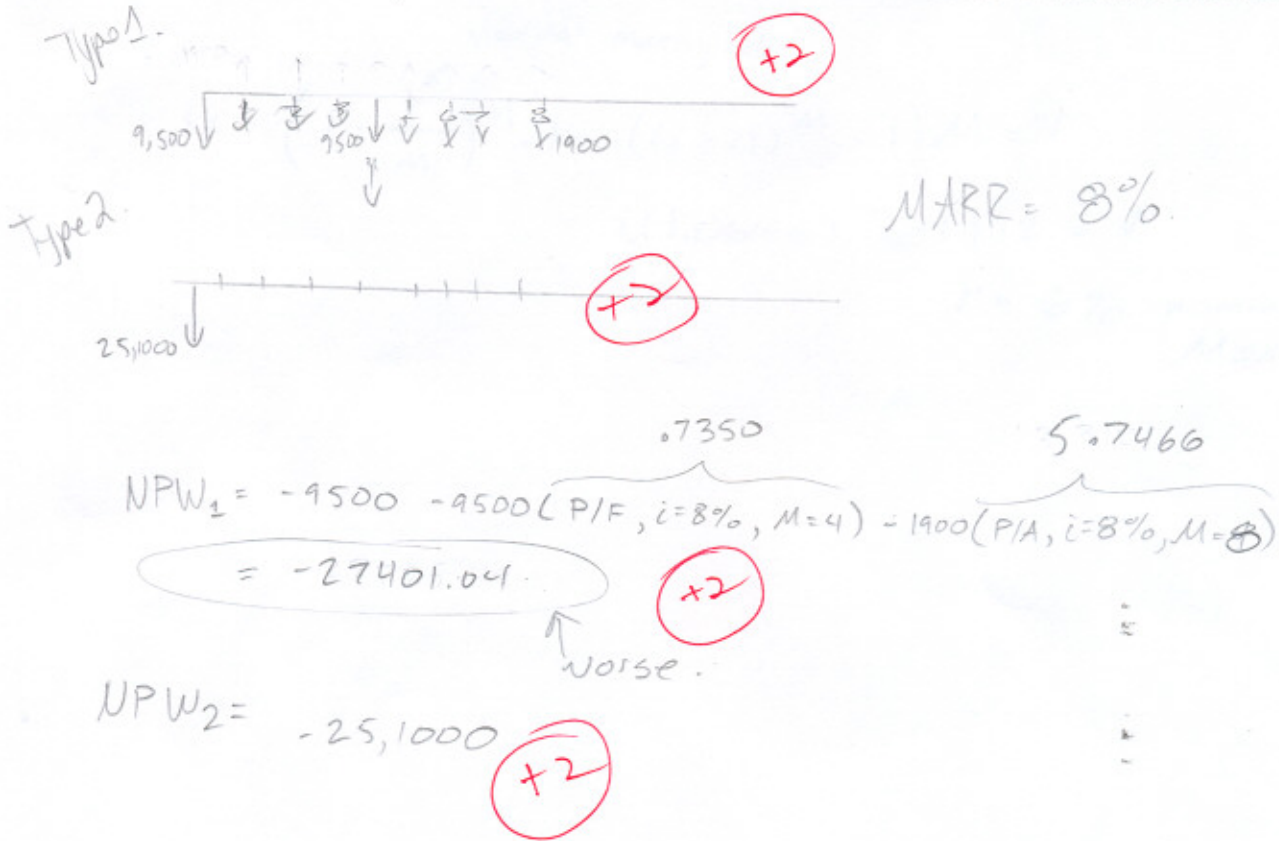 Type 1.
+2
9,500 1 2 3 9500 5 6 7 8 1900
4
MARR = 8%.
Type 2.
+2
25,1000
.7350 5.7466
NPW1 = -9500 -9500 (P/F, i=8%, M=4) - 1900 (P/A, i=8%, M=8)
= -27401.04.
+2
worse.
NPW2 =
-25,1000
+2